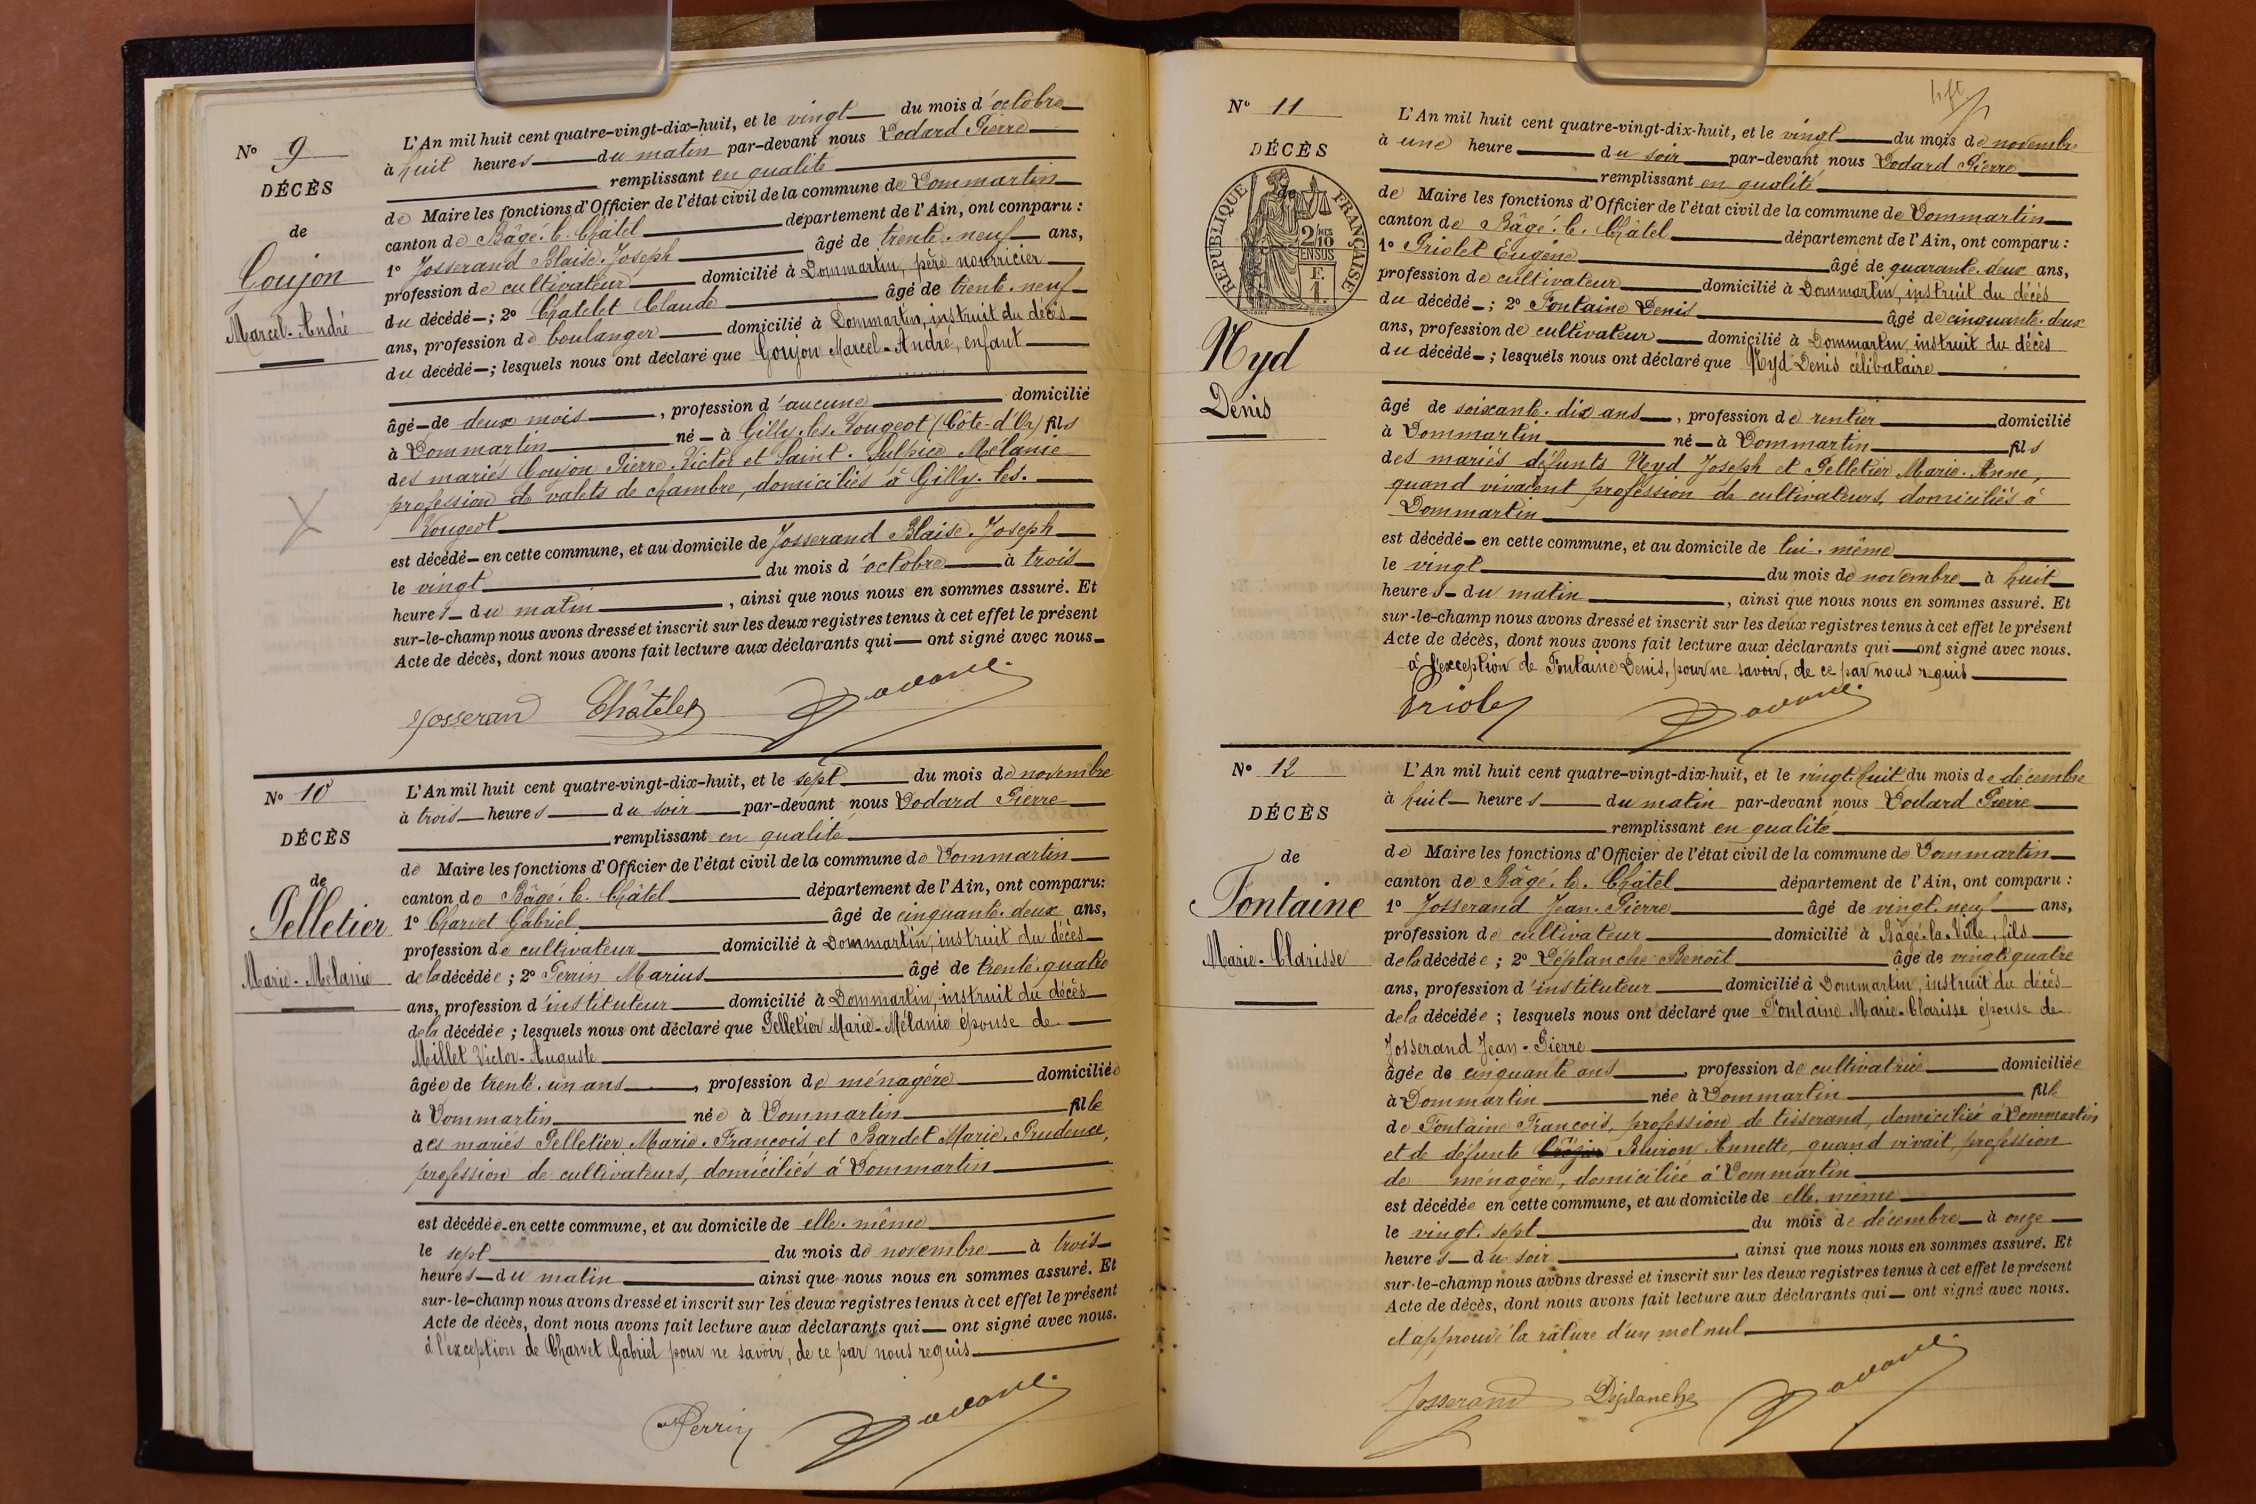 N° 9
DÉCÈS
de
Goujon
Marcel-André
L'An mil huit cent quatre-vingt-dix-huit, et le vingt du mois d'octobre
à huit heures du matin par-devant nous Dodard Pierre
remplissant en qualité
de Maire les fonctions d'Officier de l'état civil de la commune de Dommartin
canton de Bâgé-le-Châtel département de l'Ain, ont comparu :
1° Josserand Blaise-Joseph âgé de trente-neuf ans,
profession de cultivateur domicilié à Dommartin, père nourricier
du décédé ; 2° Chatelet Claude âgé de trente-neuf
ans, profession de boulanger domicilié à Dommartin, instruit du décès
du décédé ; lesquels nous ont déclaré que Goujon Marcel-André, enfant
âgé de deux mois, profession d'aucune domicilié
à Dommartin né à Gilly-les-Vougeot (Côte-d'Or) fils
des mariés Goujon Pierre-Victor et Saint-Sulpice Mélanie
profession de valets de chambre, domiciliés à Gilly-les-
Vougeot
est décédé en cette commune, et au domicile de Josserand Blaise-Joseph
le vingt du mois d'octobre à trois
heures du matin, ainsi que nous nous en sommes assuré. Et
sur-le-champ nous avons dressé et inscrit sur les deux registres tenus à cet effet le présent
Acte de décès, dont nous avons fait lecture aux déclarants qui ont signé avec nous
Josseran Châtelet Dodard
N° 10
DÉCÈS
de
Pelletier
Marie-Mélanie
L'An mil huit cent quatre-vingt-dix-huit, et le sept du mois de novembre
à trois heures du soir par-devant nous Dodard Pierre
remplissant en qualité
de Maire les fonctions d'Officier de l'état civil de la commune de Dommartin
canton de Bâgé-le-Châtel département de l'Ain, ont comparu :
1° Charvet Gabriel âgé de cinquante-deux ans,
profession de cultivateur domicilié à Dommartin, instruit du décès
de la décédée ; 2° Perrin Marius âgé de trente-quatre
ans, profession d'instituteur domicilié à Dommartin, instruit du décès
de la décédée ; lesquels nous ont déclaré que Pelletier Marie-Mélanie épouse de
Millet Victor-Auguste
âgée de trente-un ans, profession de ménagère domiciliée
à Dommartin née à Dommartin fille
des mariés Pelletier Marie-François et Bardet Marie-Prudence,
profession de cultivateurs, domiciliés à Dommartin
est décédée en cette commune, et au domicile de elle-même
le sept du mois de novembre à trois
heures du matin ainsi que nous nous en sommes assuré. Et
sur-le-champ nous avons dressé et inscrit sur les deux registres tenus à cet effet le présent
Acte de décès, dont nous avons fait lecture aux déclarants qui ont signé avec nous.
à l'exception de Charvet Gabriel pour ne savoir, de ce par nous requis
Perrin Dodard
N° 11
DÉCÈS
de
RÉPUBLIQUE FRANÇAISE
2/10 EN SUS
F. 1.
Nyd
Denis
L'An mil huit cent quatre-vingt-dix-huit, et le vingt du mois de novembre
à une heure du soir par-devant nous Dodard Pierre
remplissant en qualité
de Maire les fonctions d'Officier de l'état civil de la commune de Dommartin
canton de Bâgé-le-Châtel département de l'Ain, ont comparu :
1° Priolet Eugène âgé de quarante-deux ans,
profession de cultivateur domicilié à Dommartin, instruit du décès
du décédé ; 2° Fontaine Denis âgé de cinquante-deux
ans, profession de cultivateur domicilié à Dommartin, instruit du décès
du décédé ; lesquels nous ont déclaré que Nyd Denis célibataire
âgé de soixante-dix ans, profession de rentier domicilié
à Dommartin né à Dommartin fils
des mariés défunts Nyd Joseph et Pelletier Marie-Anne,
quand vivaient profession de cultivateurs, domiciliés à
Dommartin
est décédé en cette commune, et au domicile de lui-même
le vingt du mois de novembre à huit
heures du matin, ainsi que nous nous en sommes assuré. Et
sur-le-champ nous avons dressé et inscrit sur les deux registres tenus à cet effet le présent
Acte de décès, dont nous avons fait lecture aux déclarants qui ont signé avec nous.
à l'exception de Fontaine Denis, pour ne savoir, de ce par nous requis
Priolet Dodard
N° 12
DÉCÈS
de
Fontaine
Marie-Clarisse
L'An mil huit cent quatre-vingt-dix-huit, et le vingt-huit du mois de décembre
à huit heures du matin par-devant nous Dodard Pierre
remplissant en qualité
de Maire les fonctions d'Officier de l'état civil de la commune de Dommartin
canton de Bâgé-le-Châtel département de l'Ain, ont comparu :
1° Josserand Jean-Pierre âgé de vingt-neuf ans,
profession de cultivateur domicilié à Bâgé-la-Ville, fils
de la décédée ; 2° Déplanche Benoît âgé de vingt-quatre
ans, profession d'instituteur domicilié à Dommartin, instruit du décès
de la décédée ; lesquels nous ont déclaré que Fontaine Marie-Clarisse épouse de
Josserand Jean-Pierre
âgée de cinquante ans, profession de cultivatrice domiciliée
à Dommartin née à Dommartin fille
de Fontaine François, profession de tisserand, domicilié à Dommartin
et de défunte Buiron Annette, quand vivait, profession
de ménagère, domiciliée à Dommartin
est décédée en cette commune, et au domicile de elle-même
le vingt-sept du mois de décembre à onze
heures du soir, ainsi que nous nous en sommes assuré. Et
sur-le-champ nous avons dressé et inscrit sur les deux registres tenus à cet effet le présent
Acte de décès, dont nous avons fait lecture aux déclarants qui ont signé avec nous.
et approuvé la râture d'un mot nul
Josserand Déplanche Dodard